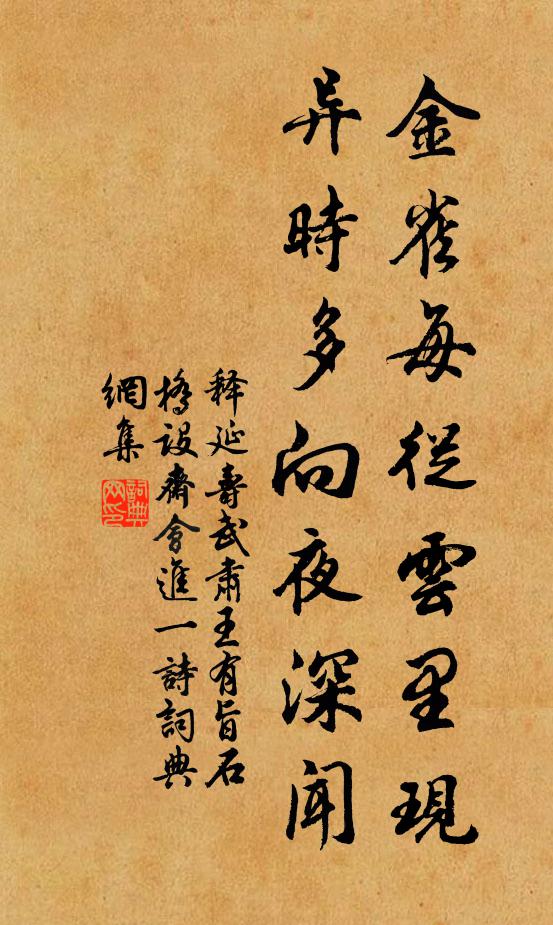 金雀每從雲里現
异時多向夜深聞
释延壽武肅王有旨石
橋設齋會進一詩詞典
網集
詞典
网印